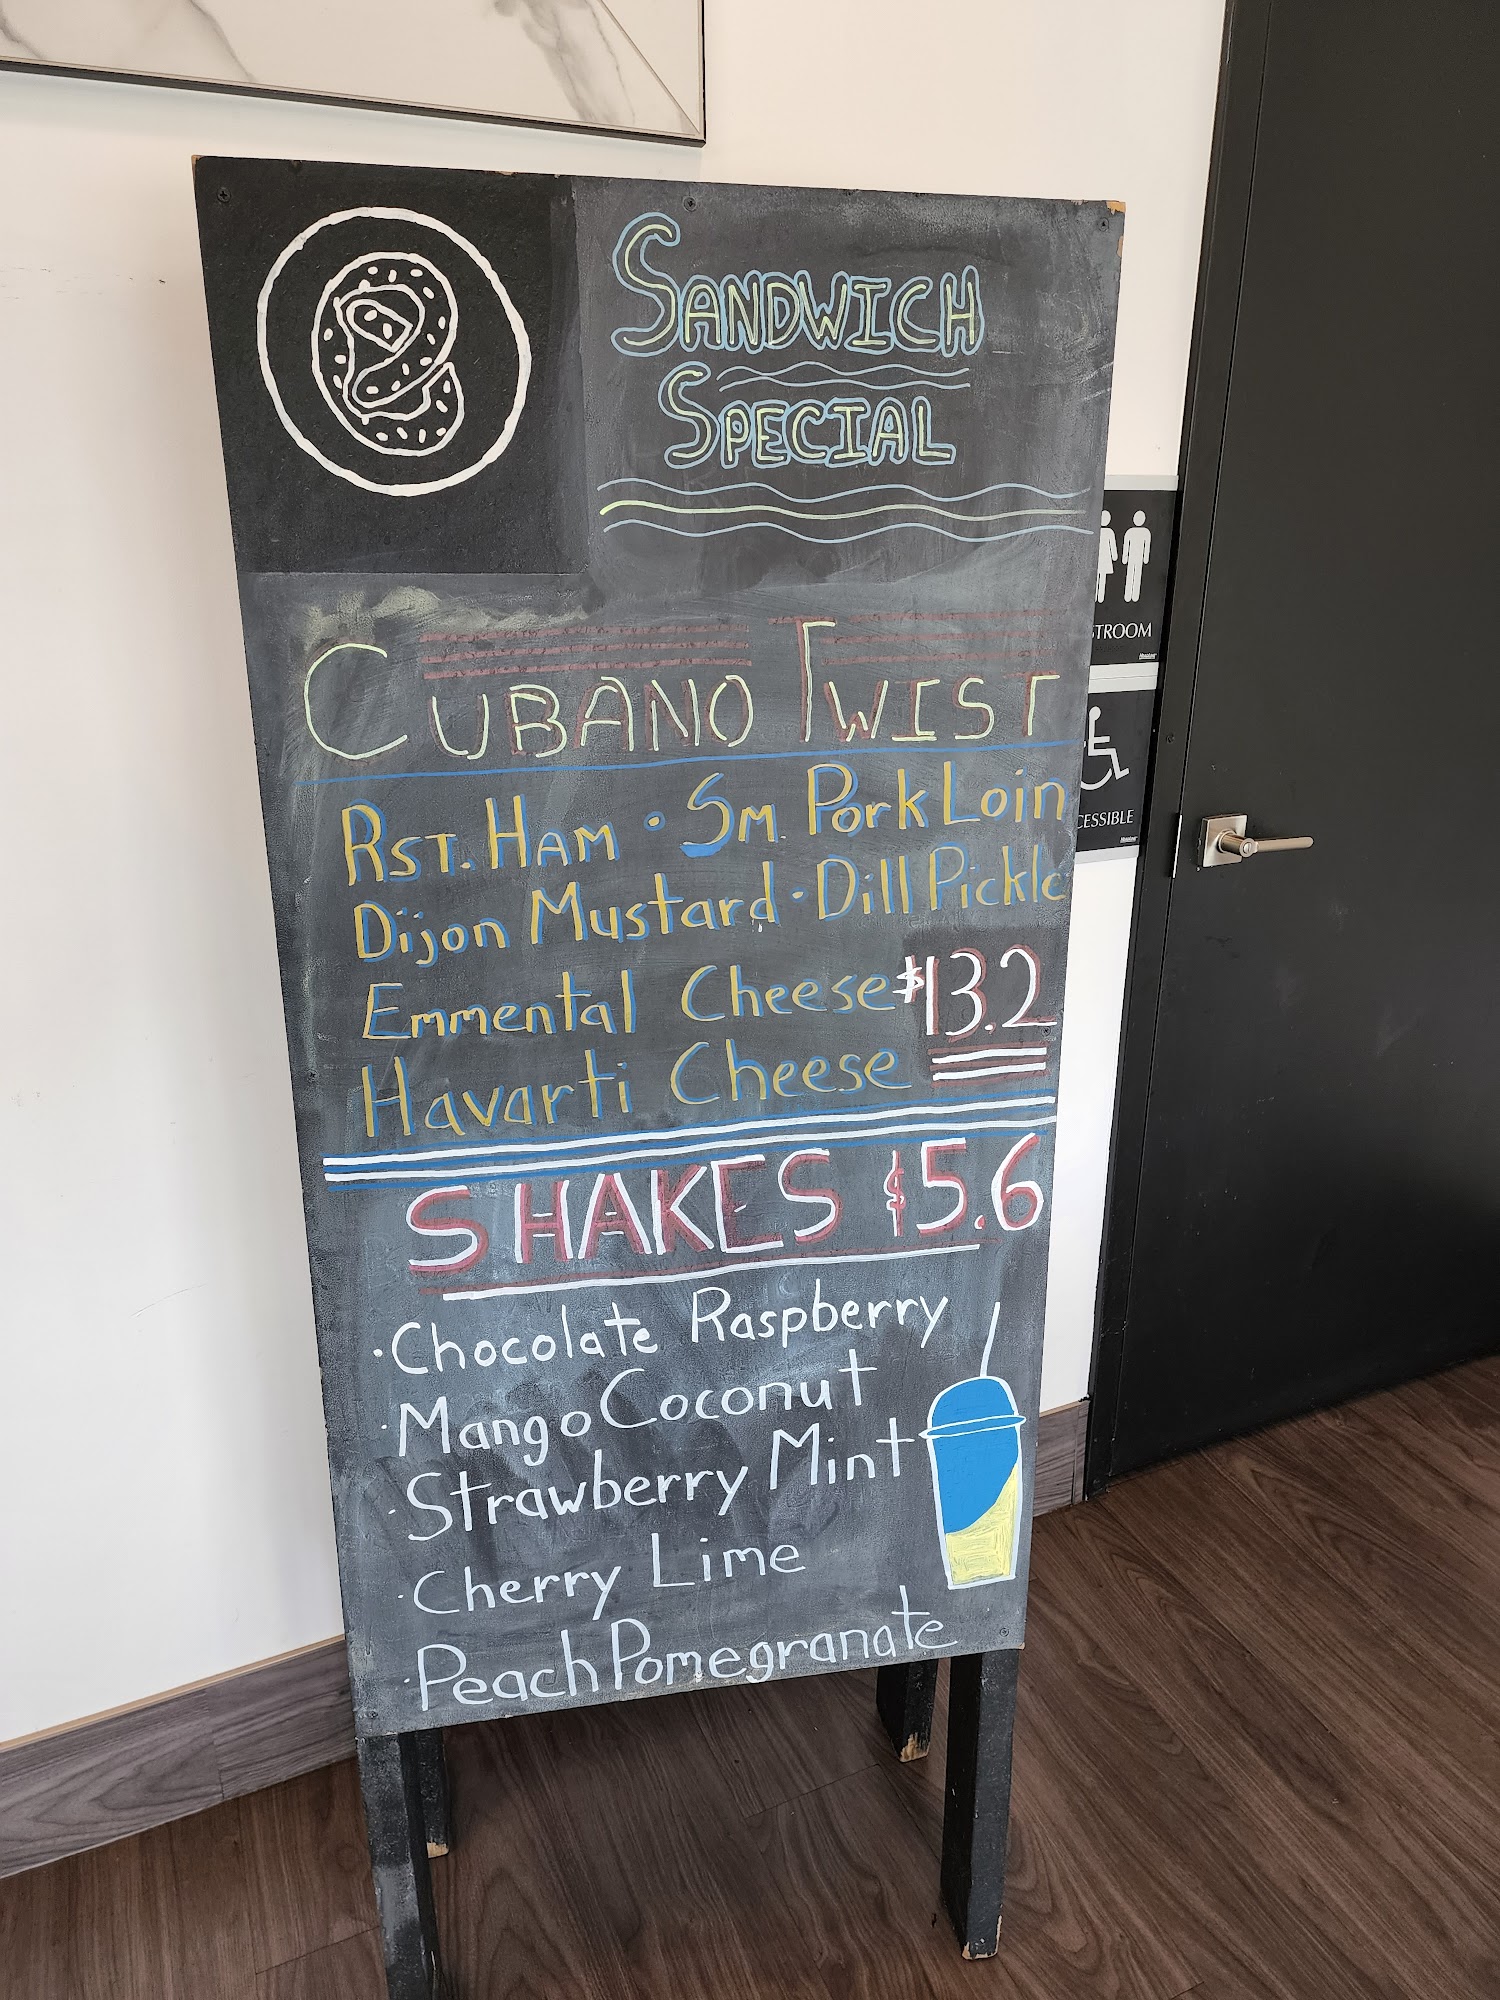 SANDWICH
SPECIAL
CUBANO TWIST
RST. HAM • SM. Pork Loin
Dijon Mustard • Dill Pickle
Emmental Cheese $13.2
Havarti Cheese
SHAKES $5.6
• Chocolate Raspberry
• Mango Coconut
• Strawberry Mint
• Cherry Lime
• Peach Pomegranate
STROOM
CESSIBLE